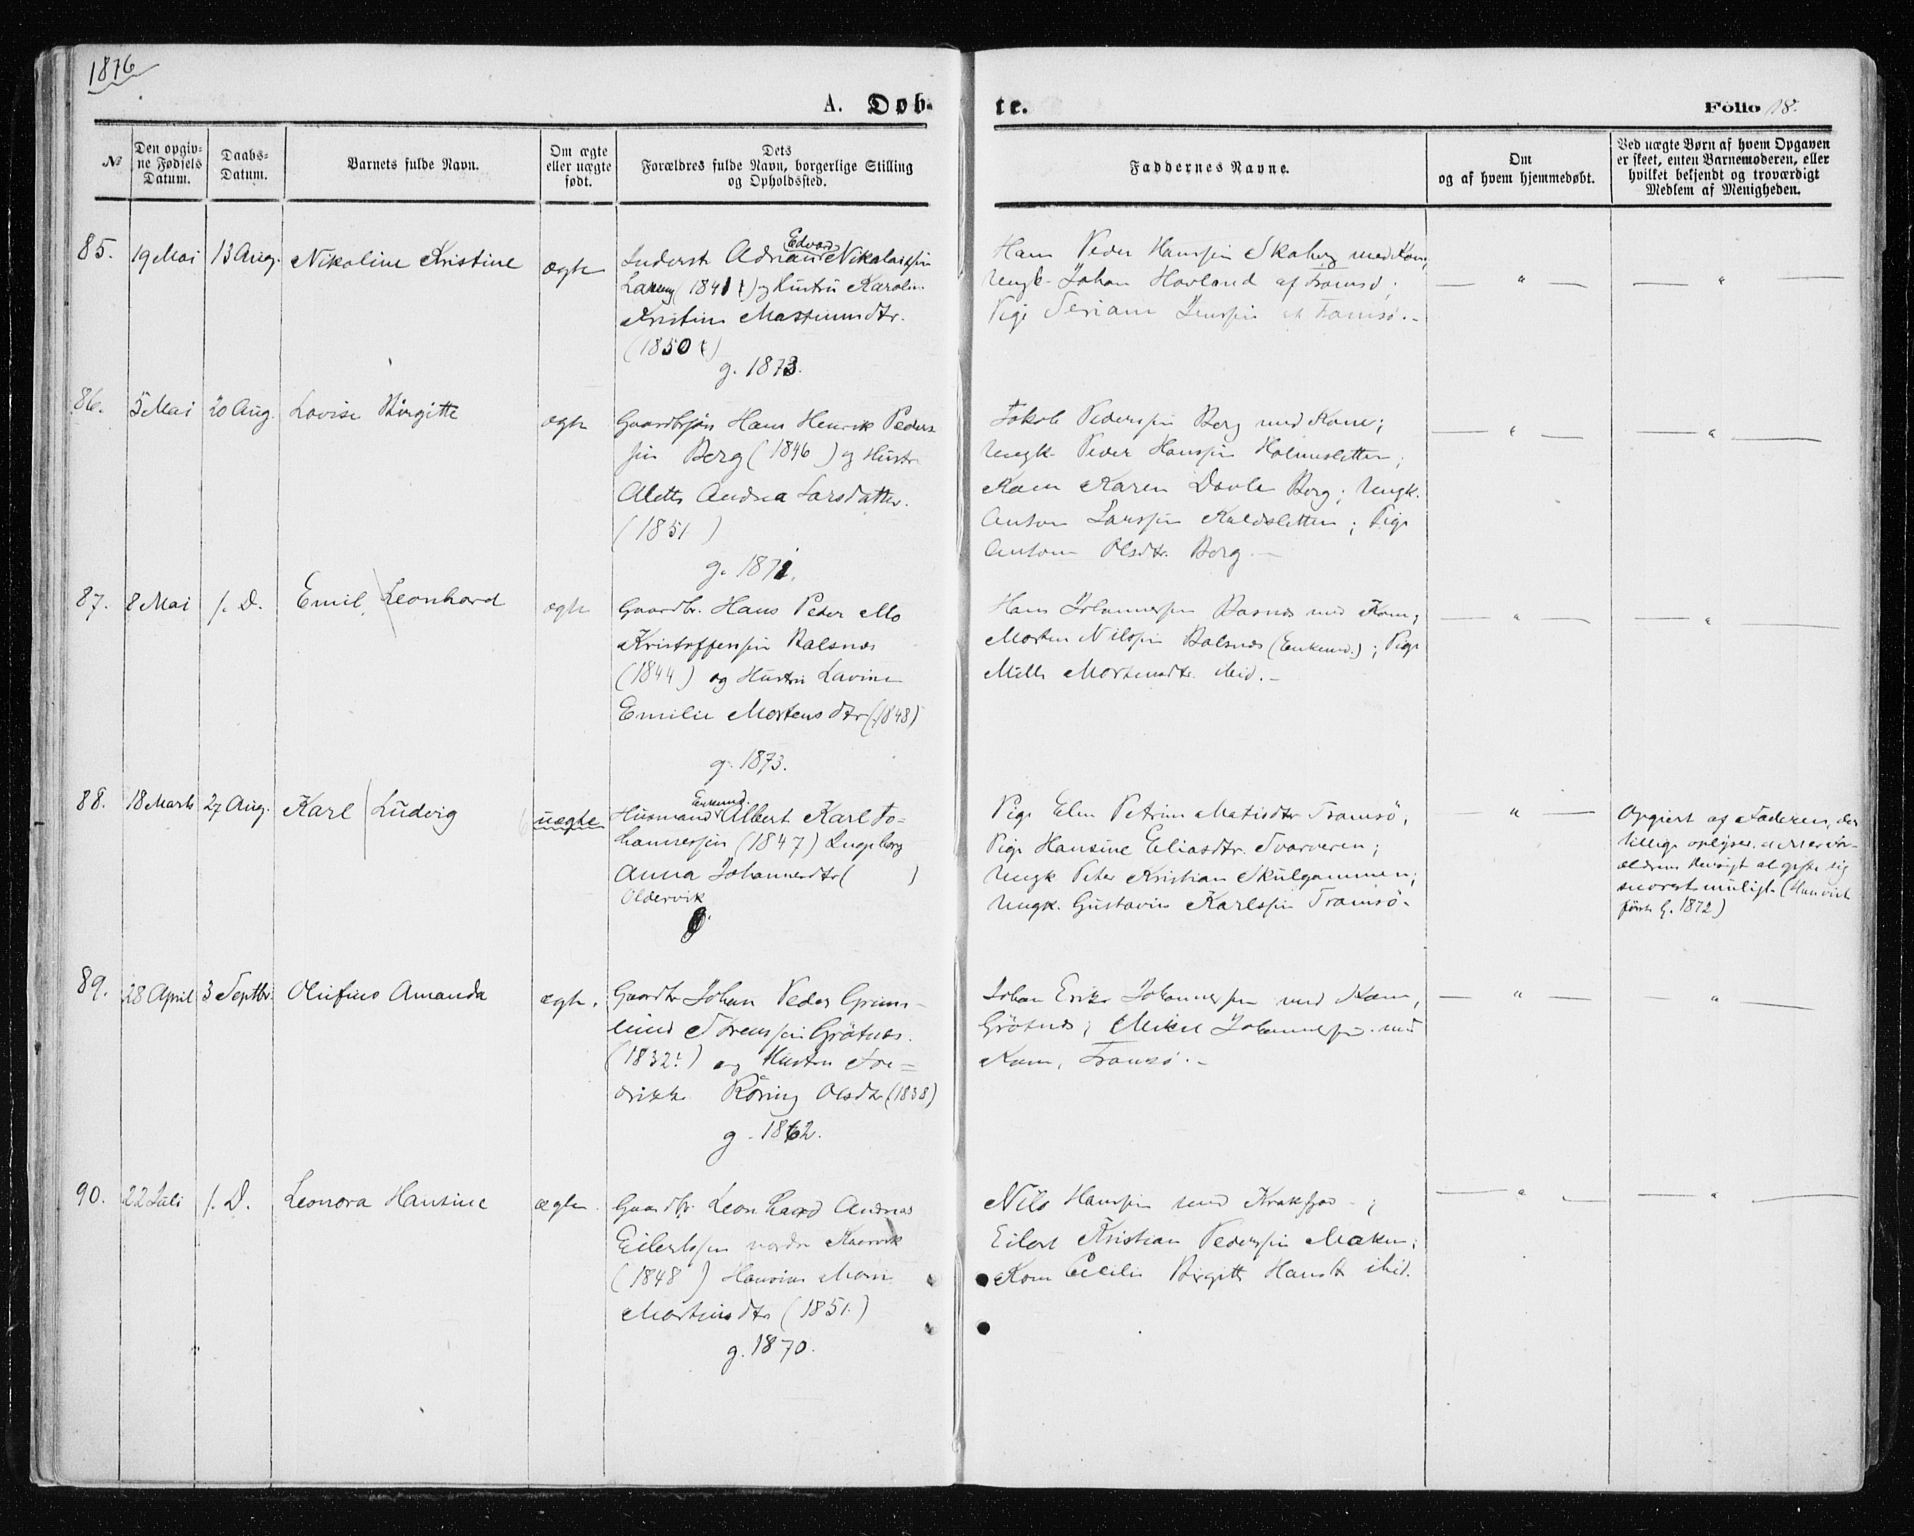 1876
A. Døb-
te.
Folio 18.
№
Den opgiv-
ne Fødsels
Datum.
Daabs-
Datum.
Barnets fulde Navn.
Om ægte
eller uægte
født.
Dets
Forældres fulde Navn, borgerlige Stilling
og Opholdssted.
Faddernes Navne.
Om
og af hvem hjemmedøbt.
Ved uægte Børn af hvem Opgaven
er skeet, enten Barnemoderen, eller
hvilket bekjendt og troværdigt
Medlem af Menigheden.
85.
19 Mai
13 Aug.
Nikoline Kristine
ægte
Edvard
Inderst Adrian Nikolaissen
(1841) og Hustru Karolin
Kristine
(1850)
g. 1873.
Hans Peder Hanssen Skaberg med Kone,
Ungk. Johan Hovland af Tromsø;
Pige Jenssen Tromsø.
86.
5 Mai
20 Aug.
Lovise Birgitte
ægte
Gaardbr Hans Henrik Peders
sen Berg (1846) og Hustru
Alette Andrea Larsdatter.
(1851)
g. 1871.
Jakob Pederssen Berg med Kone;
Ungk. Peder Hanssen Holmesletten;
Kone Karen Dorte Berg; Ungk.
Anton Larssen Kaldsletten; Pige
Olsdtr. Berg.
87.
8 Mai
s. D.
Emil Leonhard
ægte
Gaardbr. Hans Peder Mo
Kristoffersen Balsnæs
(1844) og Hustru Lavine
Emilie Mortensdtr (1848)
g. 1873.
Hans Johannessen med Kone,
Morten Nilssen Balsnæs (Enkemd.); Pige
Mille Mortensdtr. ibid.
88.
18 Marts
27 Aug.
Karl Ludvig
uægte
Enkemd.
Husmand Albert Karl Jo-
hannessen (1847) Ingeborg
Anna Johannesdtr ( )
Oldervik
Pige Elen Petrine Matisdtr Tromsø,
Pige Hansine Eliasdtr. Svarveren;
Ungk Peter Kristian Skulgammen;
Ungk. Gustavus Karlssen Tromsø.
Opgivet af Faderen, der
tillige oplyser, at
agte sig
snarest muligt (Han
først g. 1872)
89.
28 April
3 Septbr.
Olufine Amanda
ægte.
Gaardbr Johan Peder Grøn-
lund Sørenssen Grötnæs.
(1832?) og Hustru Fre-
drikke Röring Olsdtr (1838)
g. 1862.
Johan Erik Johannessen med Kone,
Grötnæs; Mikel Johannessen med
Kone, Tromsø.
90.
22 Juli
s. D.
Leonora Hansine
ægte.
Gaardbr. Leonhard Andreas
Eilertssen nordre Kaarvik
(1848) Hansine Marie
(1851)
g. 1870.
Nils Hanssen med Krakfjord;
Eilert Kristian Pederssen
Kone Cecilie Birgitte Hansdtr ibid.